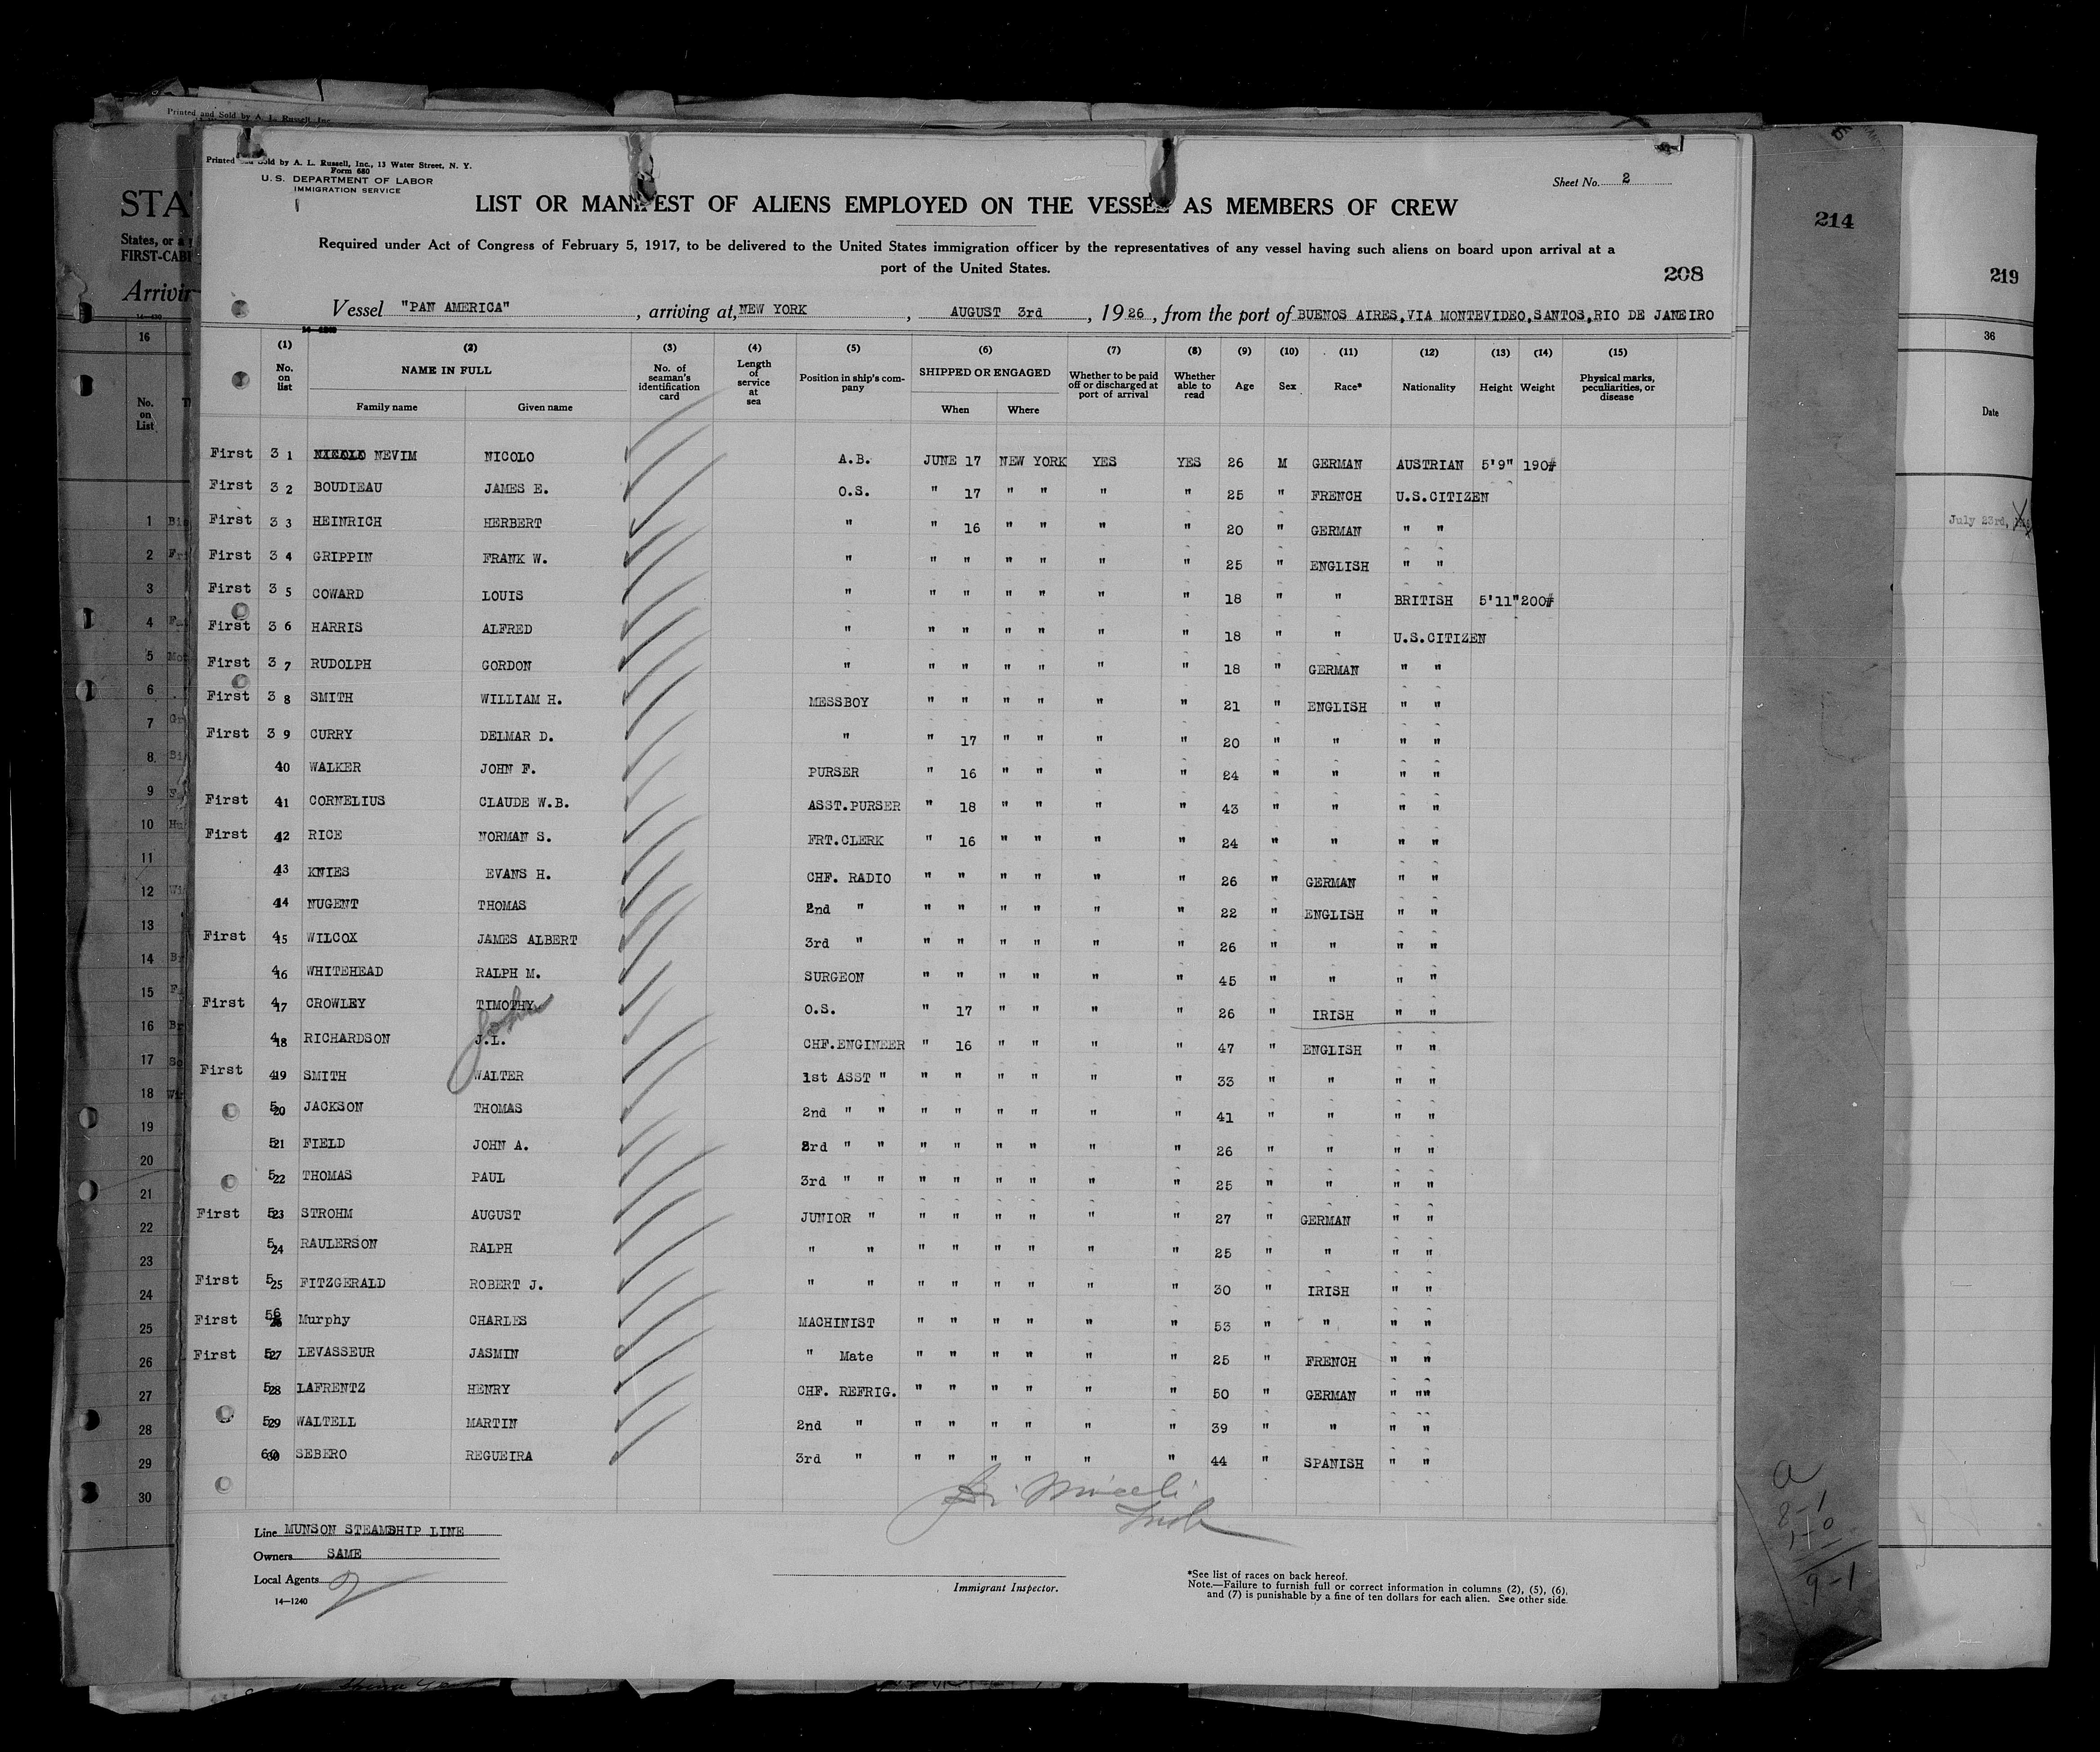 Printed and Sold by A. L. Russell, Inc.
Printed and Sold by A. L. Russell, Inc., 13 Water Street, N. Y.
Form 680
U. S. DEPARTMENT OF LABOR
IMMIGRATION SERVICE
Sheet No. 2
LIST OR MANIFEST OF ALIENS EMPLOYED ON THE VESSEL AS MEMBERS OF CREW
Required under Act of Congress of February 5, 1917, to be delivered to the United States immigration officer by the representatives of any vessel having such aliens on board upon arrival at a
port of the United States.
208
Vessel "PAN AMERICA", arriving at, NEW YORK, AUGUST 3rd, 1926, from the port of BUENOS AIRES, VIA MONTEVIDEO, SANTOS, RIO DE JANEIRO
(1) (2) (3) (4) (5) (6) (7) (8) (9) (10) (11) (12) (13) (14) (15)
No. on list NAME IN FULL Family name Given name No. of seaman's identification card Length of service at sea Position in ship's company SHIPPED OR ENGAGED When Where Whether to be paid off or discharged at port of arrival Whether able to read Age Sex Race* Nationality Height Weight Physical marks, peculiarities, or disease
First 3 1 NEVIM NICOLO A.B. JUNE 17 NEW YORK YES YES 26 M GERMAN AUSTRIAN 5'9" 190#
First 3 2 BOUDIEAU JAMES E. O.S. " 17 " " " " 25 " FRENCH U.S.CITIZEN
First 3 3 HEINRICH HERBERT " " 16 " " " " 20 " GERMAN " "
First 3 4 GRIPPIN FRANK W. " " " " " " " 25 " ENGLISH " "
First 3 5 COWARD LOUIS " " " " " " " 18 " " BRITISH 5'11" 200#
First 3 6 HARRIS ALFRED " " " " " " " 18 " " U.S.CITIZEN
First 3 7 RUDOLPH GORDON " " " " " " " 18 " GERMAN " "
First 3 8 SMITH WILLIAM H. MESSBOY " " " " " " 21 " ENGLISH " "
First 3 9 CURRY DELMAR D. " " 17 " " " " 20 " " " "
40 WALKER JOHN F. PURSER " 16 " " " " 24 " " " "
First 41 CORNELIUS CLAUDE W.B. ASST.PURSER " 18 " " " " 43 " " " "
First 42 RICE NORMAN S. FRT.CLERK " 16 " " " " 24 " " " "
43 KNIES EVANS H. CHF. RADIO " " " " " " 26 " GERMAN " "
44 NUGENT THOMAS 2nd " " " " " " " 22 " ENGLISH " "
First 45 WILCOX JAMES ALBERT 3rd " " " " " " " 26 " " " "
416 WHITEHEAD RALPH M. SURGEON " " " " " " 45 " " " "
First 417 CROWLEY TIMOTHY O.S. " 17 " " " " 26 " IRISH " "
John
418 RICHARDSON J.L. CHF.ENGINEER " 16 " " " " 47 " ENGLISH " "
First 419 SMITH WALTER 1st ASST " " " " " " " 33 " " " "
520 JACKSON THOMAS 2nd " " " " " " " " 41 " " " "
521 FIELD JOHN A. 3rd " " " " " " " " 26 " " " "
522 THOMAS PAUL 3rd " " " " " " " " 25 " " " "
First 523 STROHM AUGUST JUNIOR " " " " " " " 27 " GERMAN " "
524 RAULERSON RALPH " " " " " " " " 25 " " " "
First 525 FITZGERALD ROBERT J. " " " " " " " " 30 " IRISH " "
First 56 Murphy CHARLES MACHINIST " " " " " " 53 " " " "
First 527 LEVASSEUR JASMIN " Mate " " " " " " 25 " FRENCH " "
528 LAFRENTZ HENRY CHF. REFRIG. " " " " " " 50 " GERMAN " ""
529 WALTELL MARTIN 2nd " " " " " " " 39 " " " "
60 SEBERO REGUEIRA 3rd " " " " " " " 44 " SPANISH " "
Line MUNSON STEAMSHIP LINE
Owners SAME
Local Agents
14—1240
Immigrant Inspector.
*See list of races on back hereof.
Note.—Failure to furnish full or correct information in columns (2), (5), (6),
and (7) is punishable by a fine of ten dollars for each alien. See other side.
STA
States, or a
FIRST-CABI
Arrivin
16
No. on List
1
2
3
4
5
6
7
8
9
10
11
12
13
14
15
16
17
18
19
20
21
22
23
24
25
26
27
28
29
30
214
8-1
1-0
9-1
219
36
Date
July 23rd,